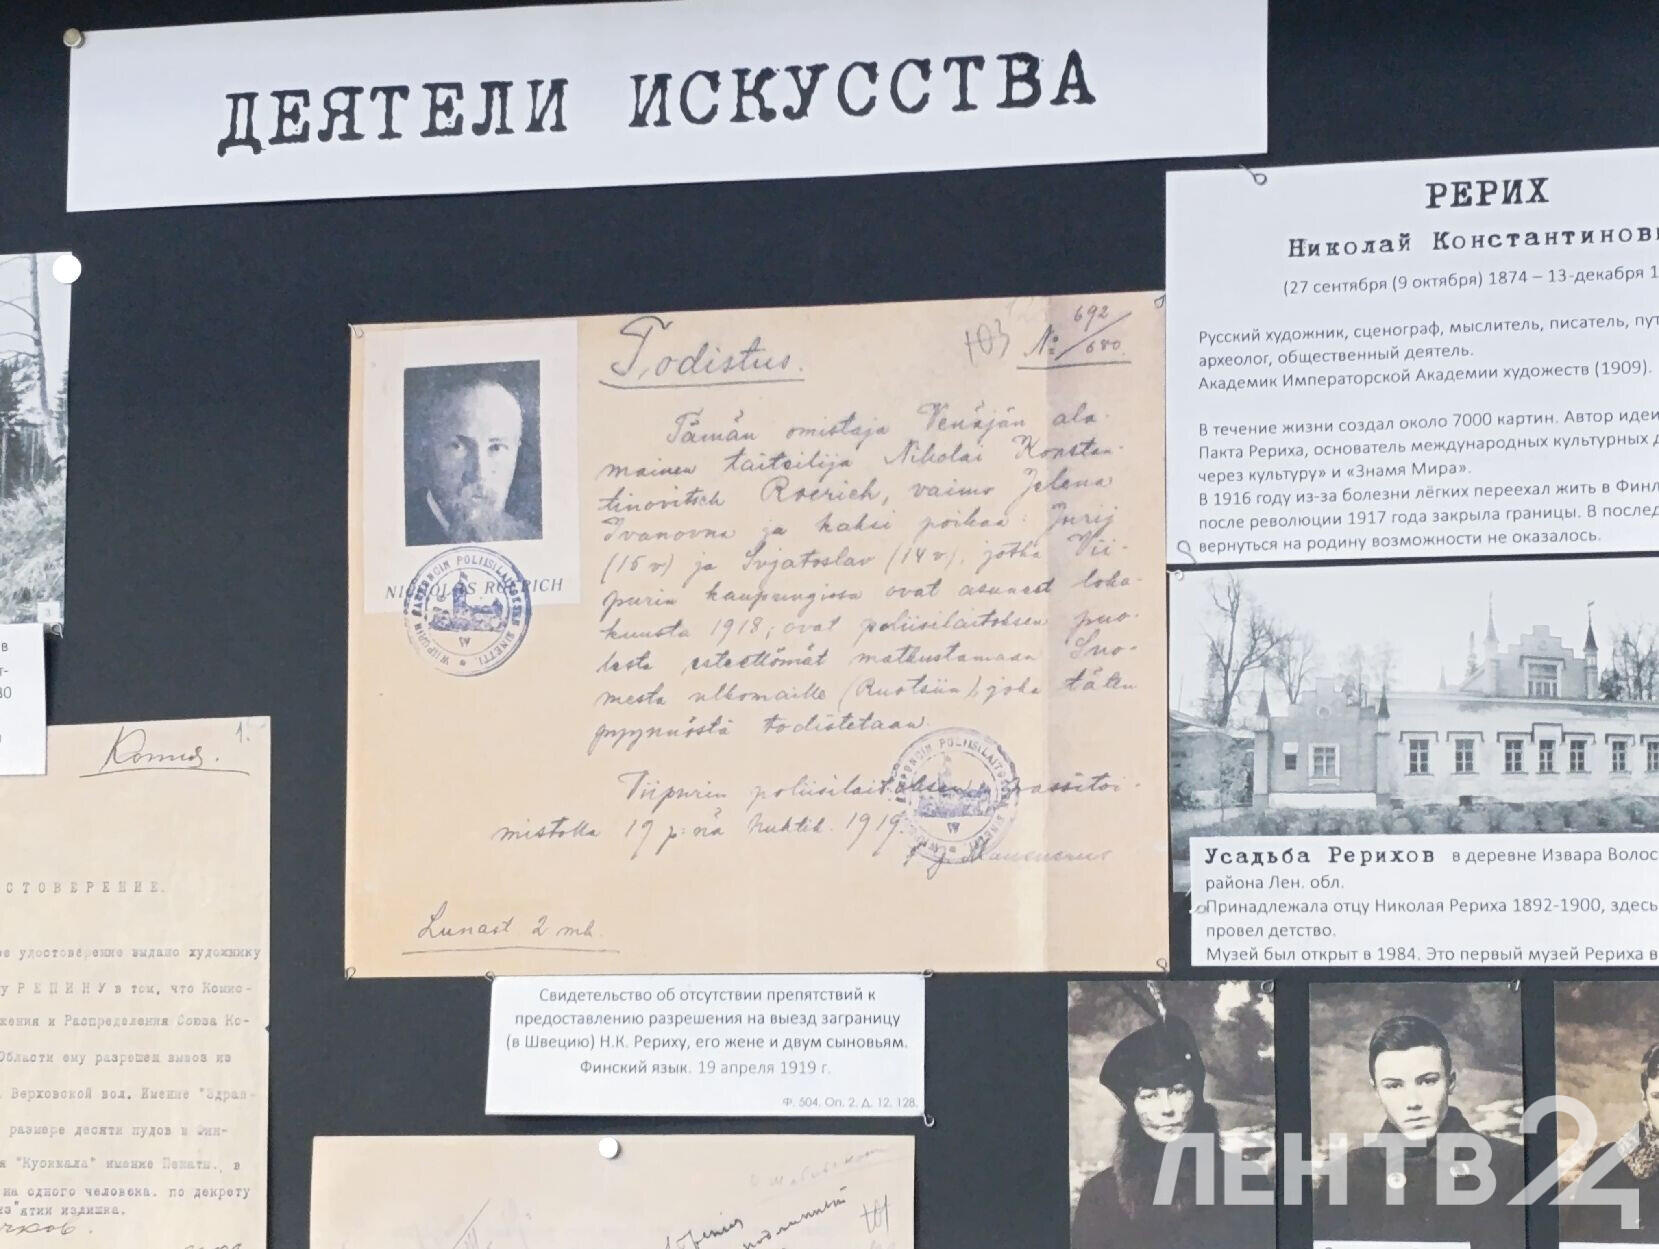 ДЕЯТЕЛИ ИСКУССТВА
РЕРИХ
Николай Константинови
(27 сентября (9 октября) 1874 – 13-декабря 1
Русский художник, сценограф, мыслитель, писатель, пут
археолог, общественный деятель.
Академик Императорской Академии художеств (1909).
В течение жизни создал около 7000 картин. Автор идеи
Пакта Рериха, основатель международных культурных д
через культуру» и «Знамя Мира».
В 1916 году из-за болезни лёгких переехал жить в Финл
после революции 1917 года закрыла границы. В послед
вернуться на родину возможности не оказалось.
Todistus.
103 № 692/680.
Tämän omistaja Venäjän ala-
mainen taiteilija Nikolai Konstan-
tinovitsch Roerich, vaimo Jelena
Ivanovna ja kaksi poikaa: Jurij
(16 v) ja Svjatoslav (14 v), jotka Vii-
purin kaupungissa ovat asuneet loka-
kuusta 1918, ovat poliisilaitoksen puo-
lesta esteettömät matkustamaan Suo-
mesta ulkomaille (Ruotsiin), joka täten
pyynnöstä todistetaan.
Viipurin poliisilaitoksen passitoi-
mistolla 19 p:nä huhtik. 1919.
Lunast 2 mk.
NICHOLAS ROERICH
WIIPURIN KAUPUNGIN POLIISILAITOKSEN SINETTI
WIIPURIN KAUPUNGIN POLIISILAITOKSEN SINETTI
Свидетельство об отсутствии препятствий к
предоставлению разрешения на выезд заграницу
(в Швецию) Н.К. Рериху, его жене и двум сыновьям.
Финский язык. 19 апреля 1919 г.
Ф. 504. Оп. 2. Д. 12. 128.
Усадьба Рерихов в деревне Извара Волос
района Лен. обл.
Принадлежала отцу Николая Рериха 1892-1900, здесь
провел детство.
Музей был открыт в 1984. Это первый музей Рериха в
3
в
т-
30
Копия.
1.
СТОВЕРЕНИЕ.
ое удостоверение выдано художнику
у РЕПИНУ в том, что Комис-
жения и Распределения Союза Ко-
Области ему разрешен вывоз из
Верховской вол. Имение "Здрав-
размере десяти пудов в Фин-
я "Куоккала" имение Пенаты., в
на одного человека. по декрету
из"ятии излишка.
101
ЛЕНТВ24